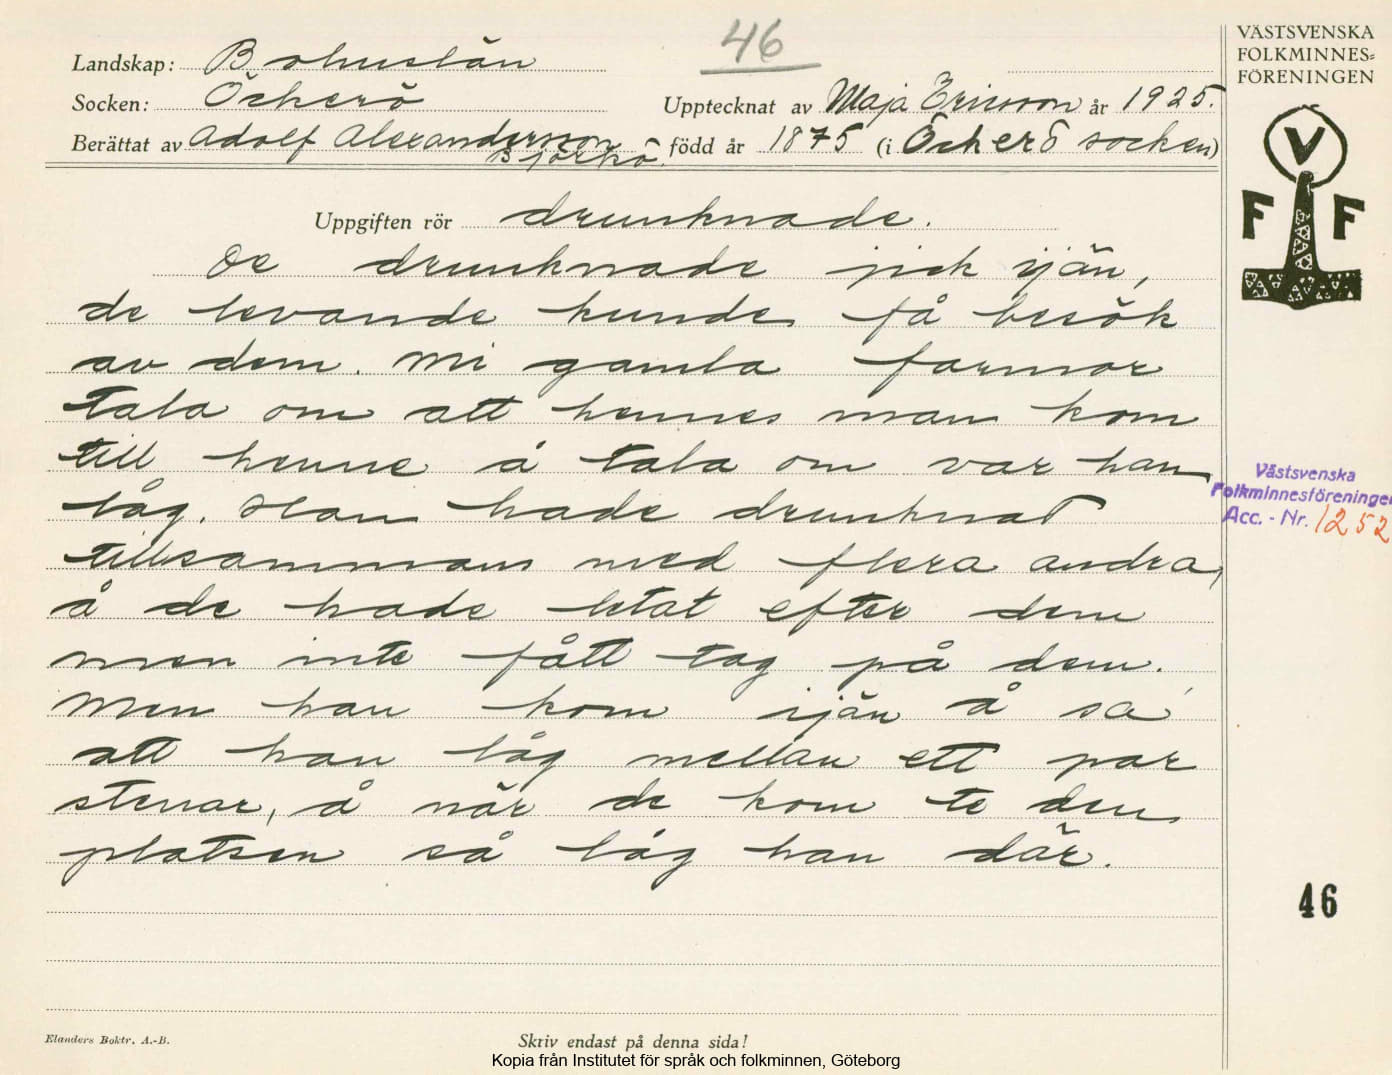 46
VÄSTSVENSKA
FOLKMINNES=
FÖRENINGEN
Landskap: Bohuslän
Socken: Öckerö
Upptecknat av Maja Ericsson år 1925.
Berättat av Adolf Alexandersson
Björkö.
född år 1875 (i Öckerö socken)
V
F F
Uppgiften rör drunknade.
De drunknade jick ijän,
de levande kunde få besök
av dem. Mi gamla farmor
tala om att hennes man kom
till henne å tala om var han
låg. Han hade drunknat
tillsammans med flera andra,
å de hade letat efter dem
men inte fått tag på dem.
Men han kom ijän å sa
att han låg mellan ett par
stenar, å när de kom te den
platsen så låg han där.
Västsvenska
Folkminnesföreningen
Acc. - Nr. 1252
46
Elanders Boktr. A.-B.
Skriv endast på denna sida!
Kopia från Institutet för språk och folkminnen, Göteborg